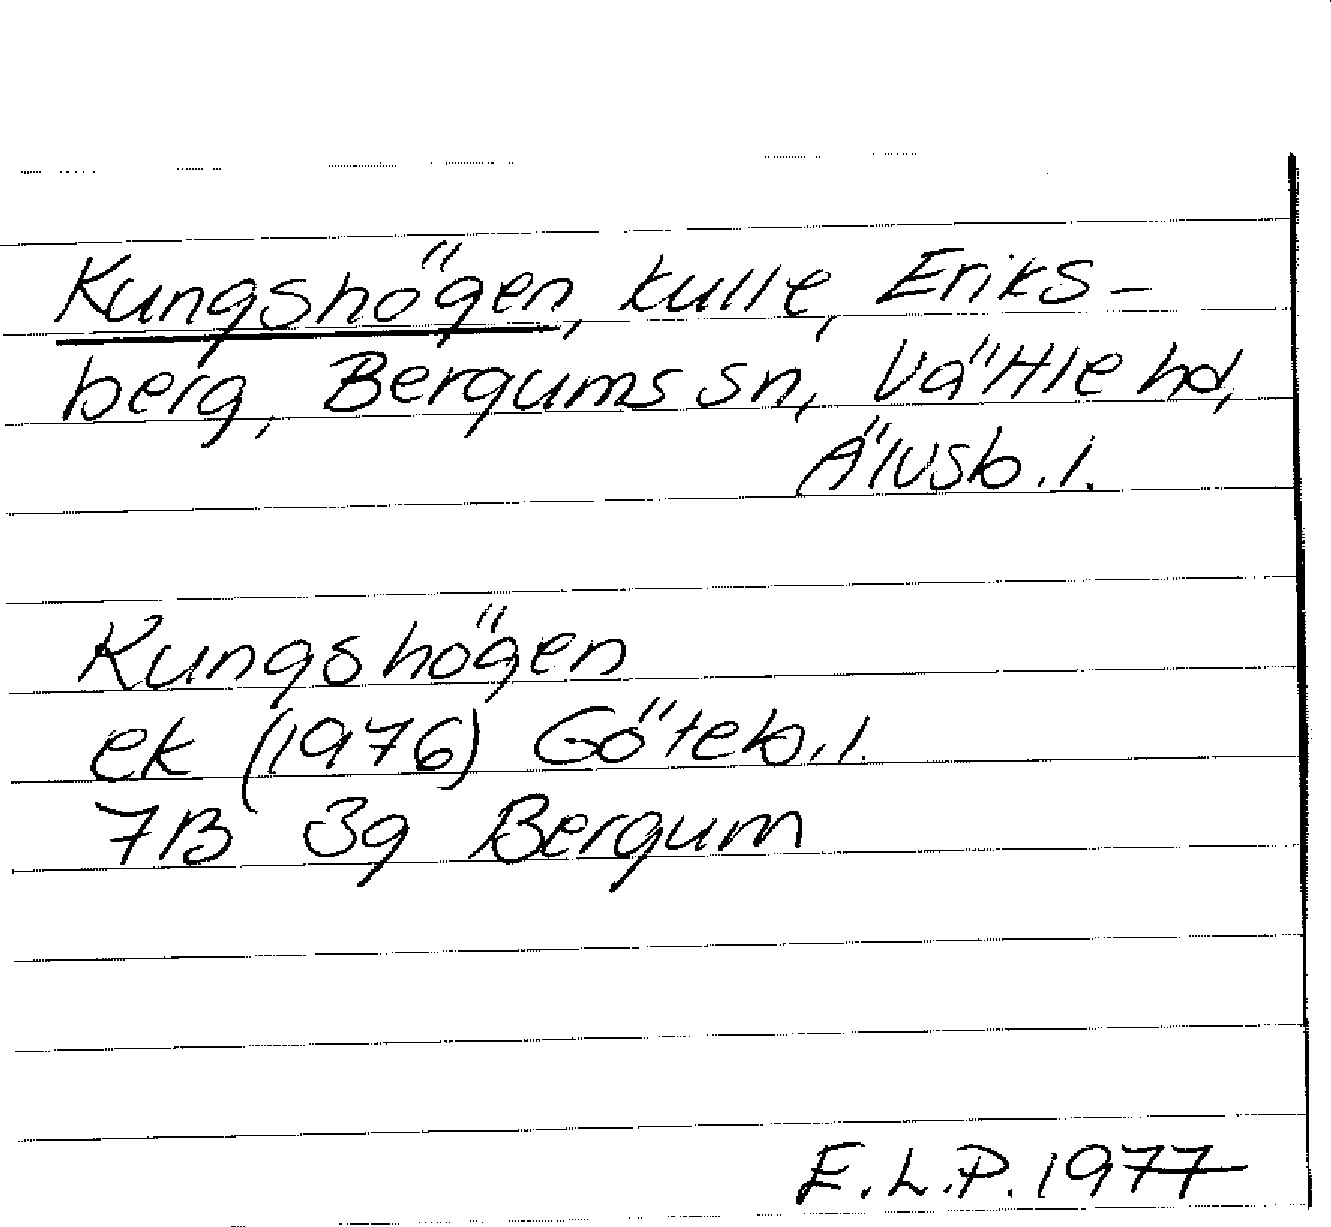 Kungshögen, kulle, Eriks-
berg, Bergums sn, Vättle hd,
Älvsb. l.
Kungshögen
ek (1976) Göteb. l.
7B 3g Bergum
E.L.P. 1977